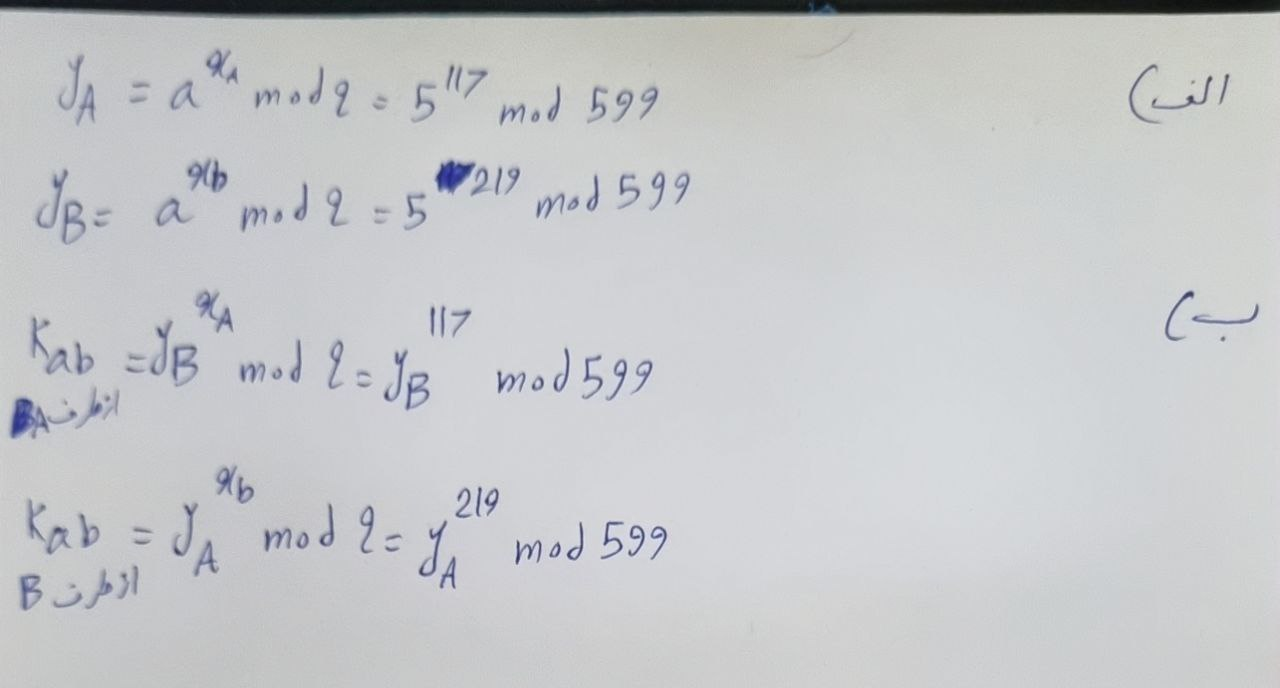 الف) y_A = a^{x_A} mod q = 5^{117} mod 599
y_B = a^{x_b} mod q = 5^{219} mod 599
ب) K_{ab} = y_B^{x_A} mod q = y_B^{117} mod 599
از طرف A
K_{ab} = y_A^{x_b} mod q = y_A^{219} mod 599
از طرف B